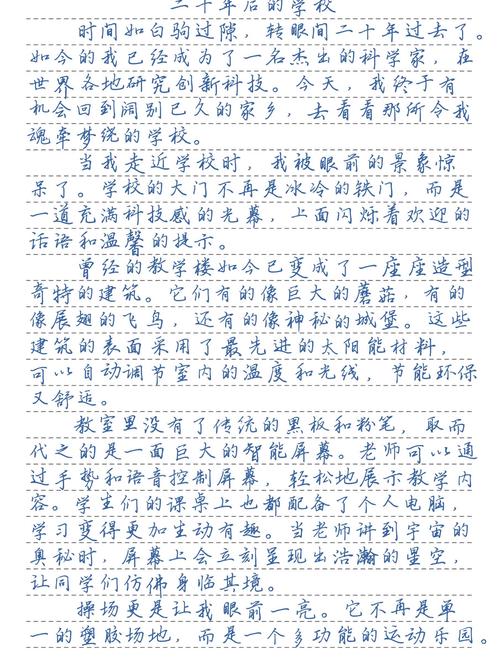 二十年后的学校
时间如白驹过隙，转眼间二十年过去了。
如今的我已经成为了一名杰出的科学家，在
世界各地研究创新科技。今天，我终于有
机会回到阔别已久的家乡，去看看那所令我
魂牵梦绕的学校。
当我走近学校时，我被眼前的景象惊
呆了。学校的大门不再是冰冷的铁门，而是
一道充满科技感的光幕，上面闪烁着欢迎的
话语和温馨的提示。
曾经的教学楼如今已变成了一座座造型
奇特的建筑。它们有的像巨大的蘑菇，有的
像展翅的飞鸟，还有的像神秘的城堡。这些
建筑的表面采用了最先进的太阳能材料，
可以自动调节室内的温度和光线，节能环保
又舒适。
教室里没有了传统的黑板和粉笔，取而
代之的是一面巨大的智能屏幕。老师可以通
过手势和语音控制屏幕，轻松地展示教学内
容。学生们的课桌上也都配备了个人电脑，
学习变得更加生动有趣。当老师讲到宇宙的
奥秘时，屏幕上会立刻呈现出浩瀚的星空，
让同学们仿佛身临其境。
操场更是让我眼前一亮。它不再是单
一的塑胶场地，而是一个多功能的运动乐园。